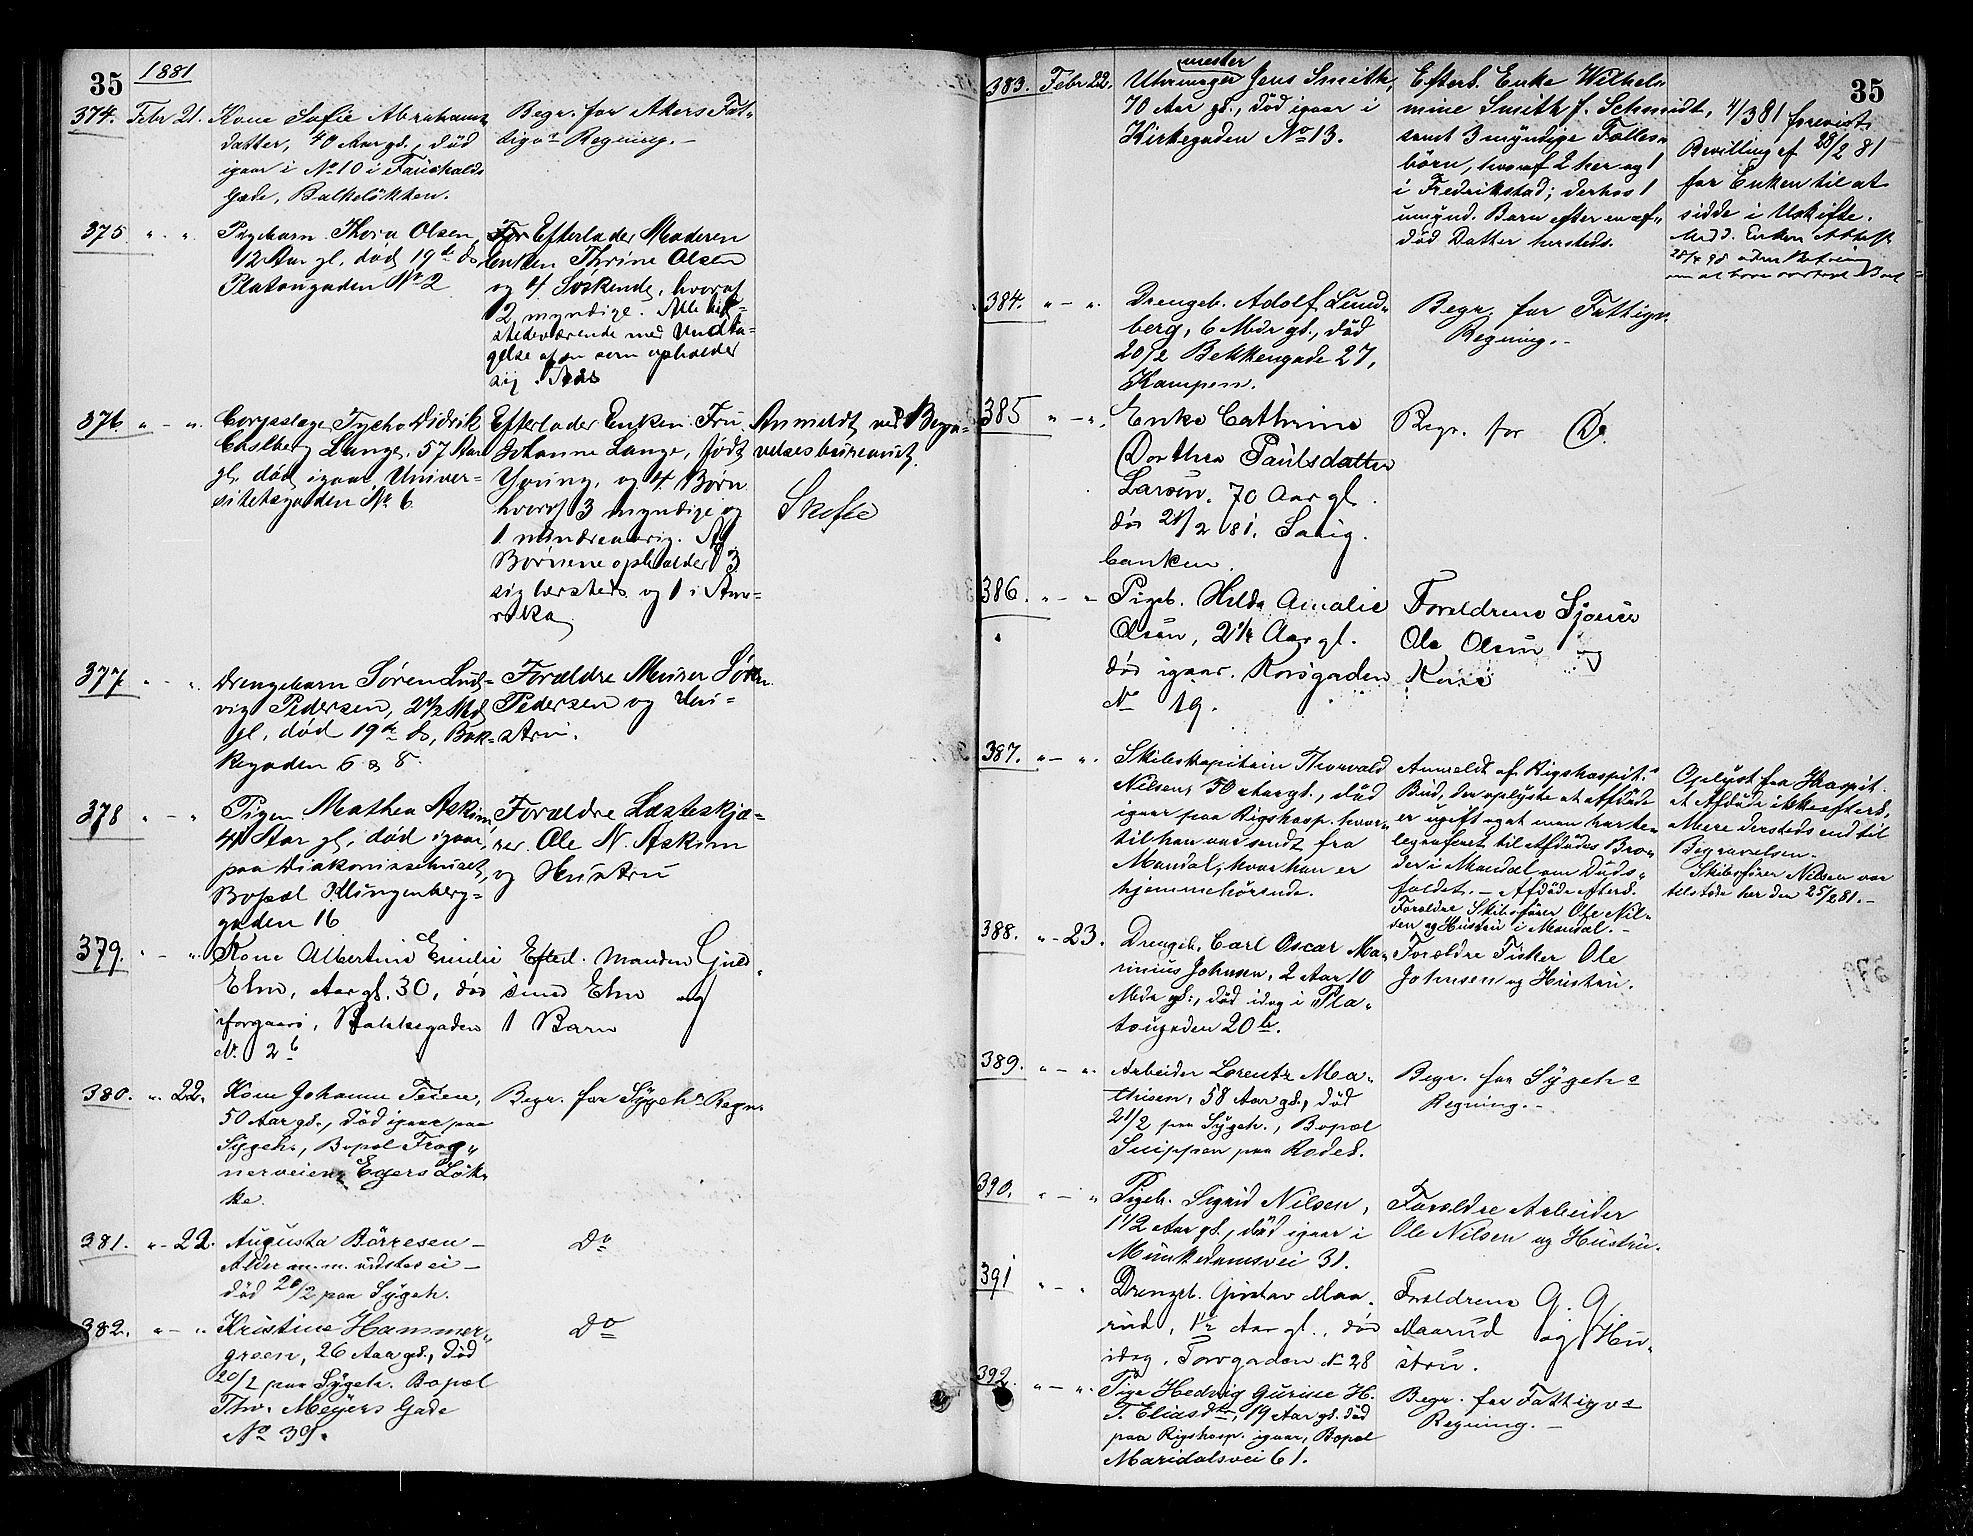 35
1881
374. Febr 21. Kone Sofie Abrahams
datter, 40 Aar gl., død
igaar i No 10 i Fauchalds
Gade, Balkeløkken.
Begr. for Akers Fat-
tigvs Regning. -
375 " " Pigebarn Thora Olsen,
12 Aar gl., død 19de ds
Platougaden No 2
Efterlader Moderen
Enken Thrine Olsen
og 4 Søskende, hvoraf
2 myndige. Alle her-
stedsværende med Undta-
gelse af en som opholder
sig i
376. " - " Corpslæge Tycho Didrik
Castberg Lange, 57 Aar
gl. død igaar, Univer-
sitetsgaden No 6
Efterlader Enken Fru
Johanne Lange, født
Young, og 4 Børn
hvoraf 3 myndige og
1 mindreaarig. Af
Børnene opholder 3
sig hersteds og 1 i Ame-
rika
Anmeldt ved Begra-
velsesbureauet.
Skifte
377. " - " Drengebarn Søren Lud-
vig Pedersen, 2 1/2 Md
gl., død 19de ds, Bak-
kegaden 6 & 8.
Forældre Murer Søren
Pedersen og Hu-
stru.
378 " - " Pigen Mathea Askim
41 Aar gl., død igaar,
paa Diakonissehuset,
Bopæl Klingenberg-
gaden 16
Forældre Lasteskjæ-
rer Ole N. Askim
og Hustru
379. " - " Kone Albertine Emilie
Elm, Aar gl. 30, død
iforgaars, Bakkegaden
No. 2b
Efterl. Manden Gud-
mund Elm og
1 Barn
380. " 22. Kone Johanne Teien,
50 Aar gl., død igaar paa
Sygeh., Bopæl Frog-
nerveien, Egers Løk-
ke.
Begr. for Sygehs Regn.
381. " - 22. Augusta Børresen -
Alder m.m. vidstes ei -
død 20/2 paa Sygeh.
Do
382. " - " Kristine Hammer-
green, 26 Aar gl., død
20/2 paa Sygeh. Bopæl
Thv. Meyers Gade
No 39.
Do
35
383. Febr 22. Uhrmager mester Jens Smith,
70 Aar gl., død igaar i
Kirkegaden No 13.
Efterl. Enke Wilhel-
mine Smith f. Schmidt,
samt 3 myndige Fælles-
børn, hvoraf 2 her og 1
i Fredrikstad; derhos 1
umynd. Barn efter en af-
død Datter hersteds.
4/3 81 forevist
Bevilling af 28/2 81
for Enken til at
sidde i Uskifte.
384. " - " Drengeb. Adolf Lund-
berg, 6 Mdr gl., død
20/2 Bekkengade 27,
Kampen.
Begr. for Fattigv.
Regning. -
385 " - " Enke Cathrine
Dorthea Paulsdatter
Larsen. 70 Aar gl.
død 21/2 81.
banken.
Begr. for Do.
386. " - " Pigeb. Hilda Amalie
Olsen, 2 1/4 Aar gl.
død igaar. Korsgaden
No 19.
Forældrene
Ole Olsen og
Kone
387. " - " Skibskapitain Thorvald
Nilsen, 50 Aar gl., død
igaar paa Rigshosp. hvor-
til han var sendt fra
Mandal, hvor han er
hjemmehørende.
Anmeldt af Rigshospit.s
Bud, der oplyste at Afdøde
er ugift og at man har te-
legraferet til Afdødes Bro-
der i Mandal om Døds-
faldet. - Afdøde efterl.
Forældre Skibsfører Ole Nil-
sen og Hustru i Mandal. -
Oplyst fra Hospit.
at Afdøde ikke efterl.
Mere dersteds end til
Begravelsen.
Skibsfører Nilsen var
tilstede her den 25/2 81. -
388. " - 23. Drengeb. Carl Oscar Ma-
rinius Johnsen, 2 Aar 10
Mdr gl., død idag i Pla-
tougaden 20b.
Forældre Fisker Ole
Johnsen og Hustru.
389. " - " Arbeider Lorentz Ma-
thisen, 58 Aar gl., død
21/2 paa Sygeh., Bopæl
Snippen paa Rodel.
Begr. for Sygehs
Regning. -
390. " - " Pigeb. Sigrid Nilsen,
1 1/2 Aar gl., død igaar i
Munkedamsvei 31.
Forældre Arbeider
Ole Nilsen og Hustru.
391 " - " Drengeb. Gustav Maa-
rud, 1 1/2 Aar gl., død
idag, Torvgaden No 28
Forældrene G. G.
Maarud og Hu-
stru.
392. " - " Pige Hedvig Gurine H.
T. Eliasdtr, 19 Aar gl. død
paa Rigshosp. igaar, Bopæl
Maridalsvei 61.
Begr. for Fattigvs
Regning. -